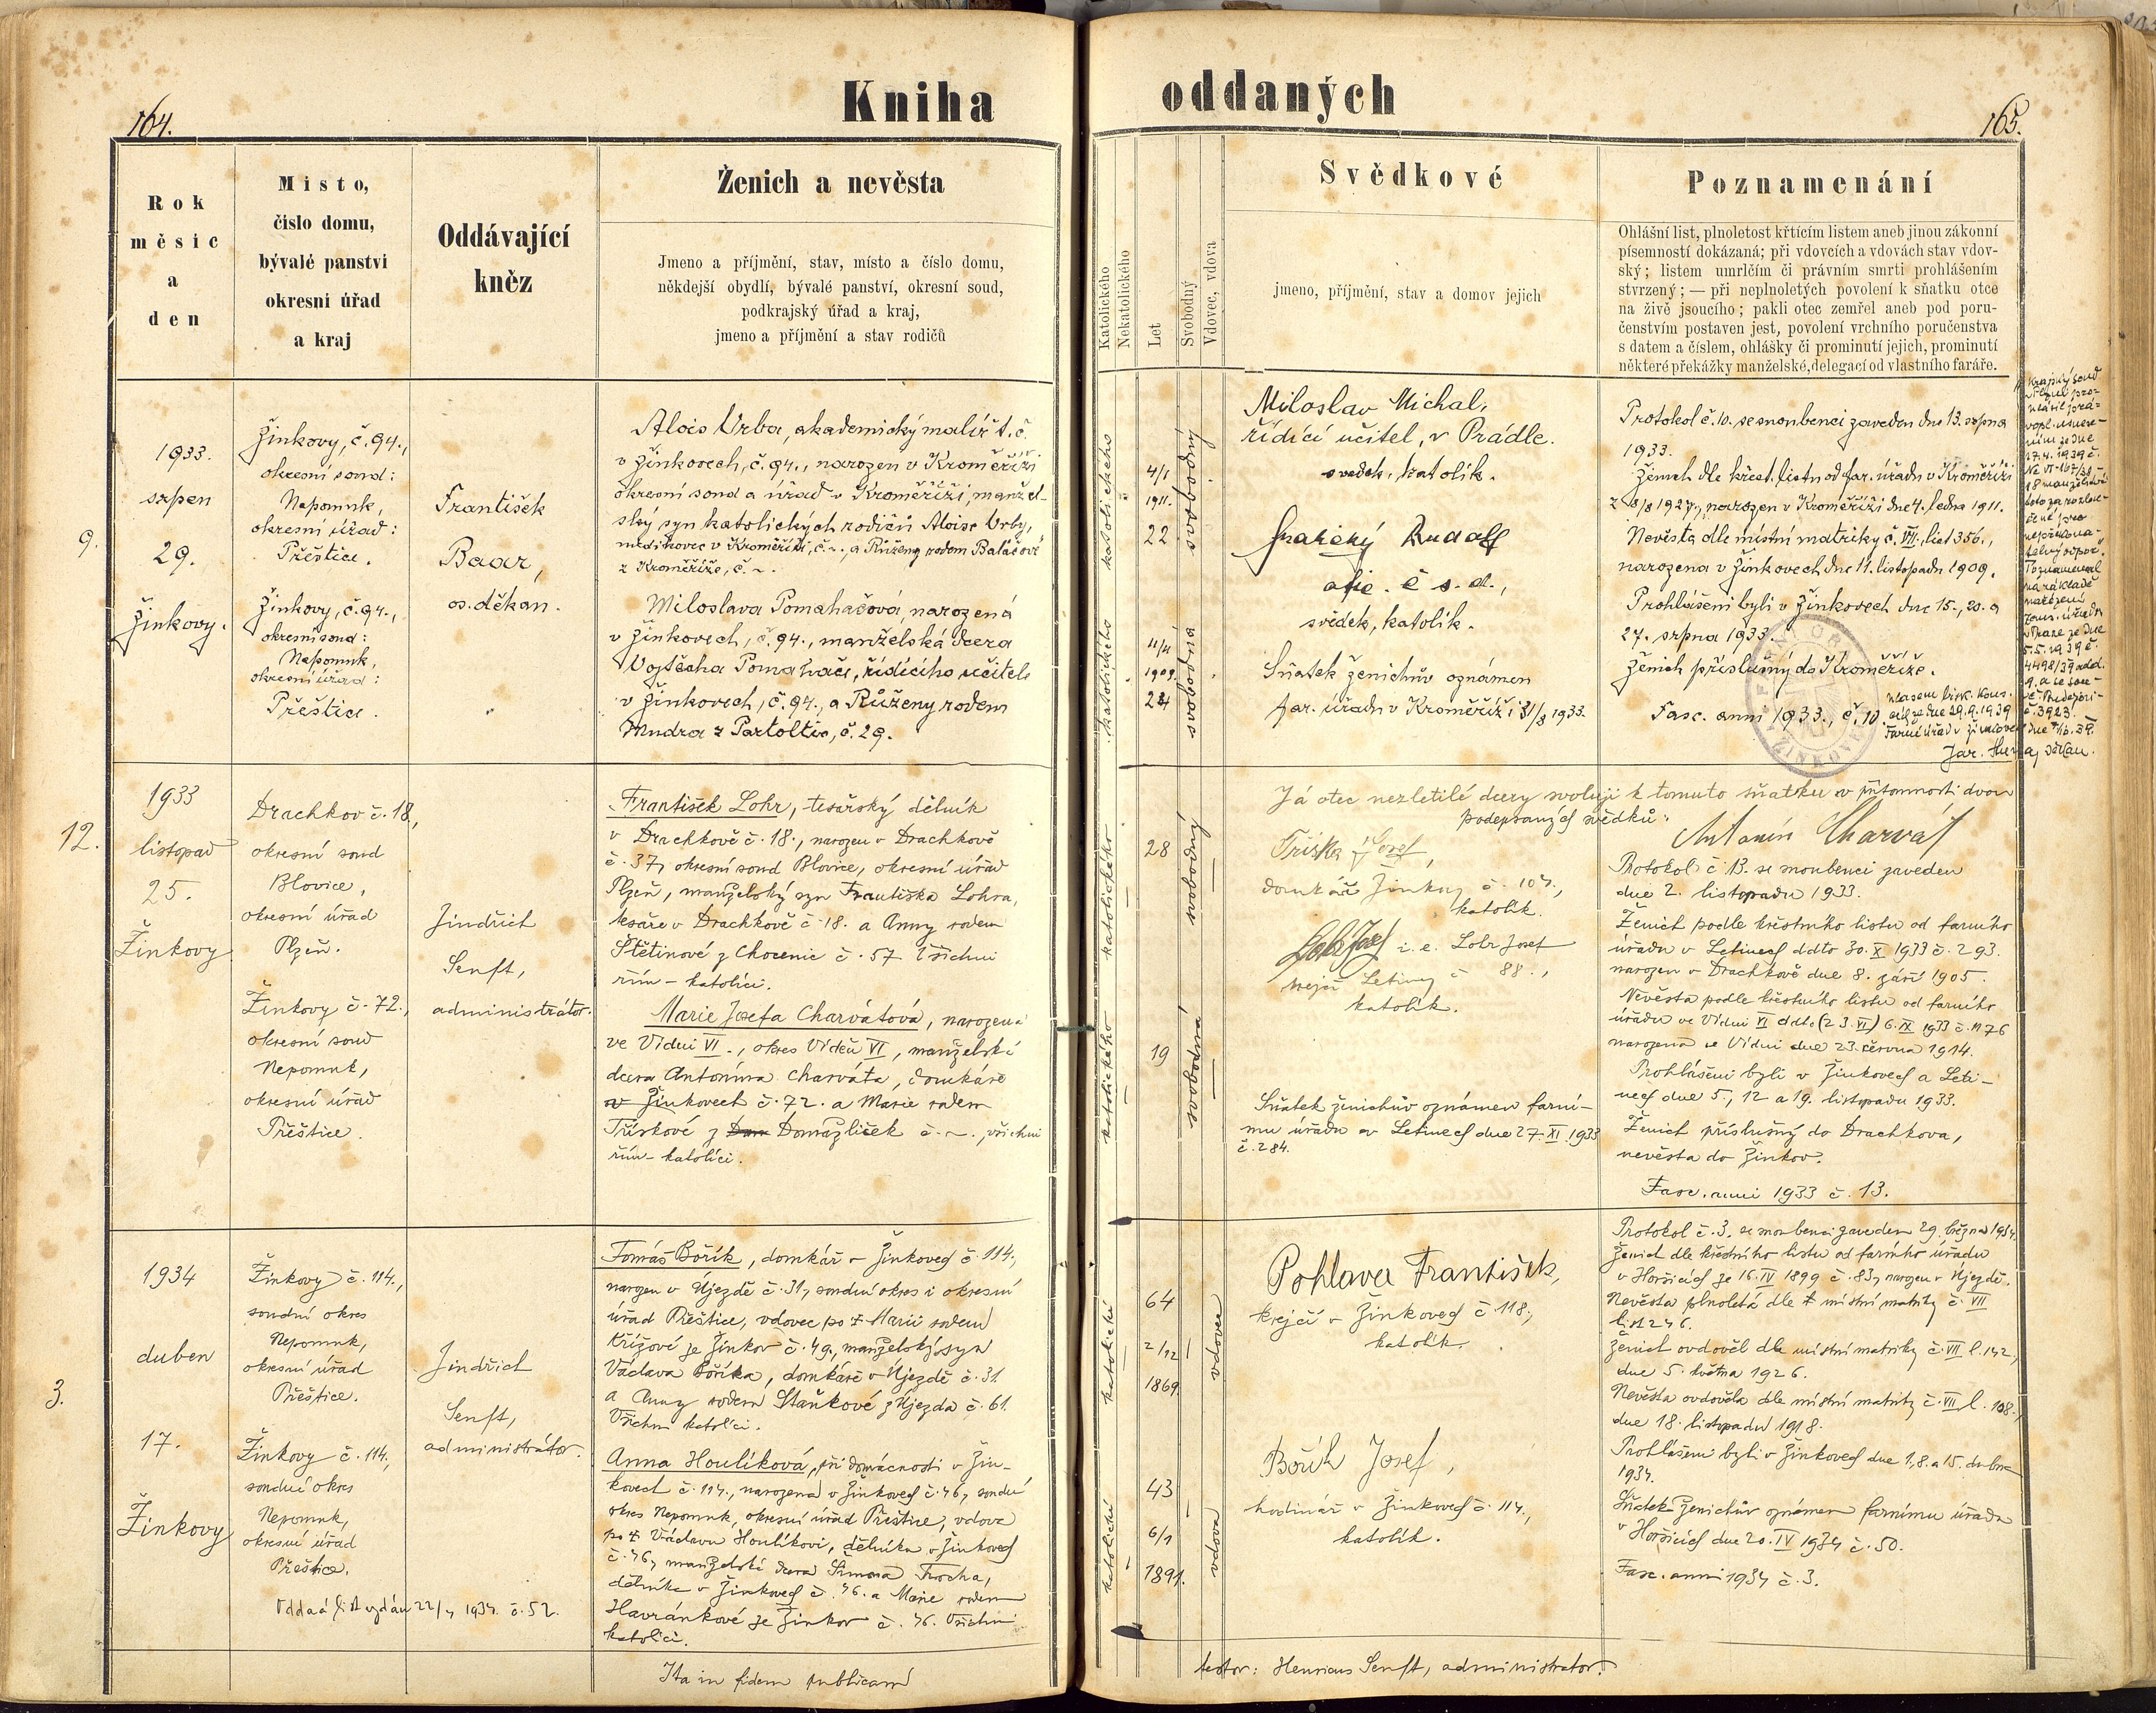 164.
Kniha oddaných
165.
Rok
měsíc
a
den
Misto,
čislo domu,
bývalé panstvi
okresni úřad
a kraj
Oddávající
kněz
Ženich a nevěsta
Jmeno a příjmění, stav, místo a číslo domu,
někdejší obydlí, bývalé panství, okresní soud,
podkrajský úřad a kraj,
jmeno a příjmění a stav rodičů
Katolického
Nekatolického
Let
Svobodný
Vdovec, vdova
Svědkové
jmeno, příjmění, stav a domov jejich
Poznamenání
Ohlášní list, plnoletost křtícím listem aneb jinou zákonní
písemností dokázaná; při vdovcích a vdovách stav vdov-
ský; listem umrlčím či právním smrti prohlášením
stvrzený; — při neplnoletých povolení k sňatku otce
na živě jsoucího; pakli otec zemřel aneb pod poru-
čenstvím postaven jest, povolení vrchního poručenstva
s datem a číslem, ohlášky či prominutí jejich, prominutí
některé překážky manželské, delegací od vlastního faráře.
9.
1933.
srpen
29.
Žinkovy.
Žinkovy, č. 94.,
okresní soud:
Nepomuk,
okresní úřad:
Přeštice.
Žinkovy, č. 94.,
okresní soud:
Nepomuk,
okresní úřad:
Přeštice.
František
Baar,
os. děkan.
Alois Vrba, akademický malíř t. č.
v Žinkovech, č. 94., narozen v Kroměříži
okresní soud a úřad v Kroměříži, manžel-
ský syn katolických rodičů Aloise Vrby,
v Kroměříži, č. ~., a Růženy rodem Balášové
z Kroměříže, č. ~.
Miloslava Pomahačová, narozená
v Žinkovech, č. 94., manželská dcera
Vojtěcha Pomahače, řídícího učitele
v Žinkovech, č. 94., a Růženy rodem
Mudra z Partoltic, č. 29.
katolického
4/1
1911.
22
svobodný
katolického
11/11
1909.
24
svobodná
Miloslav Michal,
řídící učitel, v Prádle.
svědek, katolík.
Rudolf
č. s. d.,
svědek, katolík.
Sňatek ženichův oznámen
far. úřadu v Kroměříži 31/8 1933.
Protokol č. 10. se snoubenci zaveden dne 13. srpna
1933.
Ženich dle křest. listu od far. úřadu v Kroměříži
z 8/8 1927, narozen v Kroměříži dne 4. ledna 1911.
Nevěsta dle místní matriky č. VII., list 356.,
narozena v Žinkovech dne 11. listopadu 1909.
Prohlášeni byli v Žinkovech dne 15., 20. a
27. srpna 1933.
Ženich příslušný do Kroměříže.
Fasc. anni 1933., č. 10.
Krajský soud
v Plzni pro-
hlásil
27.4.1939 č.
manželství
toto za rozlou-
čené pro
nepřekona-
telný odpor.
Poznamenal
na základě
nařízení
zem. úřadu
v Praze ze dne
5.5.1939 č.
4498/39 odd.
9. a se sou-
hlasem bisk. kons.
č. 3923.
ze dne 29.9.1939
Farní úřad v Žinkovech
děkan.
12.
1933
listopad
25.
Žinkovy
Drachkov č. 18,
okresní soud
Blovice,
okresní úřad
Plzeň.
Žinkovy č. 72.,
okresní soud
Nepomuk,
okresní úřad
Přeštice.
Jindřich
Senft,
administrátor.
František Lohr, tesařský dělník
v Drachkově č. 18., narozen v Drachkově
č. 37, okresní soud Blovice, okresní úřad
Plzeň, manželský syn Františka Lohra,
tesaře v Drachkově č. 18. a Anny rodem
Štětinové z Chocenic č. 57 Všichni
řím - katolíci.
Marie Josefa Charvátová, narozena
ve Vídni VI., okres Vídeň VI, manželská
dcera Antonína Charváta, domkáře
v Žinkovech č. 72. a Marie rodem
Třískové z Dom Domažliček č. ~., všichni
řím - katolíci.
katolického
28
svobodný
katolického
19
svobodná
Já otec nezletilé dcery svoluji k tomuto sňatku v přítomnosti dvou
podepsaných svědků:
Antonín Charvát
Tříska Josef,
domkář Žinkovy č. 107.,
katolík.
Lohr Josef i. e. Lohr Josef
krejčí Letiny č 88.,
katolík.
Sňatek ženichův oznámen farní-
mu úřadu v Letinech dne 27. XI. 1933
č. 284.
Protokol č. 13. se snoubenci zaveden
dne 2. listopadu 1933.
Ženich podle křestního listu od farního
úřadu v Letinech ddto 30. X 1933 č. 293.
narozen v Drachkově dne 8. září 1905.
Nevěsta podle křestního listu od farního
úřadu ve Vídni VI ddto (23. VI) 6. IX 1933 č. 1176
narozena ve Vídni dne 23. června 1914.
Prohlášeni byli v Žinkovech a Leti-
nech dne 5., 12 a 19. listopadu 1933.
Ženich příslušný do Drachkova,
nevěsta do Žinkov.
Fasc. anni 1933 č. 13.
3.
1934
duben
17.
Žinkovy
Žinkovy č. 114.,
soudní okres
Nepomuk,
okresní úřad
Přeštice.
Žinkovy č. 114.,
soudní okres
Nepomuk,
okresní úřad
Přeštice.
Oddací list vydán 22/4 1934. č. 52.
Jindřich
Senft,
administrátor.
Tomáš Bořík, domkář v Žinkovech č. 114.,
narozen v Újezdě č. 31, soudní okres i okresní
úřad Přeštice, vdovec po † Marii rodem
Křížové ze Žinkov č. 49., manželský syn
Václava Boříka, domkáře v Újezdě č. 31
a Anny rodem Staňkové z Újezda č. 61.
Všichni katolíci.
Anna Houlíková, při domácnosti v Žin-
kovech č. 114., narozena v Žinkovech č. 46, soudní
okres Nepomuk, okresní úřad Přeštice, vdova
po † Václavu Houlíkovi, dělníku v Žinkovech
č. 46, manželská dcera Šimona Trocha,
dělníka v Žinkovech č. 46. a Marie rodem
Havránkové ze Žinkov č. 46. Všichni
katolíci.
katolické
64
2/12
1869.
vdovec
katolické
43
6/1
1891.
vdova
Pohlava František,
krejčí v Žinkovech č 118,
katolík.
Bořík Josef,
hodinář v Žinkovech č. 114.,
katolík.
Protokol č. 3. se snoubenci zaveden 29. března 1934.
Ženich dle křestního listu od farního úřadu
v Horšicích ze 16. IV 1899 č. 83, narozen v Újezdě.
Nevěsta plnoletá dle místní matriky č. VII
list 246.
Ženich ovdověl dle místní matriky č. VII l. 142,
dne 5. května 1926.
Nevěsta ovdověla dle místní matriky č. VII l. 108.,
dne 18. listopadu 1918.
Prohlášeni byli v Žinkovech dne 1., 8. a 15. dubna
1934.
Sňatek ženichův oznámen farnímu úřadu
v Horšicích dne 20. IV 1934 č. 50.
Fasc. anni 1934 č. 3.
Ita in fidem publicam
testor: Henricus Senft, administrator.